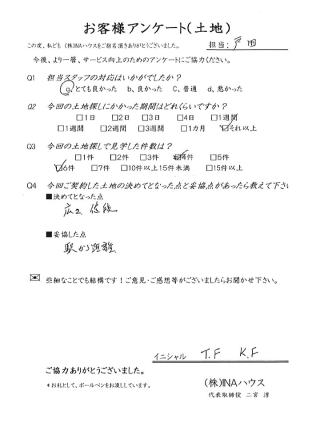 お客様アンケート(土地)
この度、私ども (株)INAハウスをご指名頂きありがとうございました。 担当: 戸田
今後、より一層、サービス向上のためのアンケートにご協力ください。
Q1 担当スタッフの対応はいかがでしたか？
a、とても良かった b、良かった C、普通 d、悪かった
Q2 今回の土地探しにかかった期間はどれくらいですか？
□1日 □2日 □3日 □4日 □1週間
□1週間 □2週間 □3週間 □1カ月 ☑それ以上
Q3 今回の土地探しで見学した件数は？
□1件 □2件 □3件 □4件 □5件
☑6件 □7件 □10件以上15件未満 □15件以上
Q4 今回ご契約した土地の決めてとなった点と妥協点があったら教えて下さい
■決めてとなった点
広さ 価格
■妥協した点
駅から距離
些細なことでも結構です！ご意見・ご感想等がございましたらお聞かせ下さい。
イニシャル T.F K.F
ご協力ありがとうございました。
*お礼として、ボールペンをお渡ししています。
(株)INAハウス
代表取締役 二宮 淳